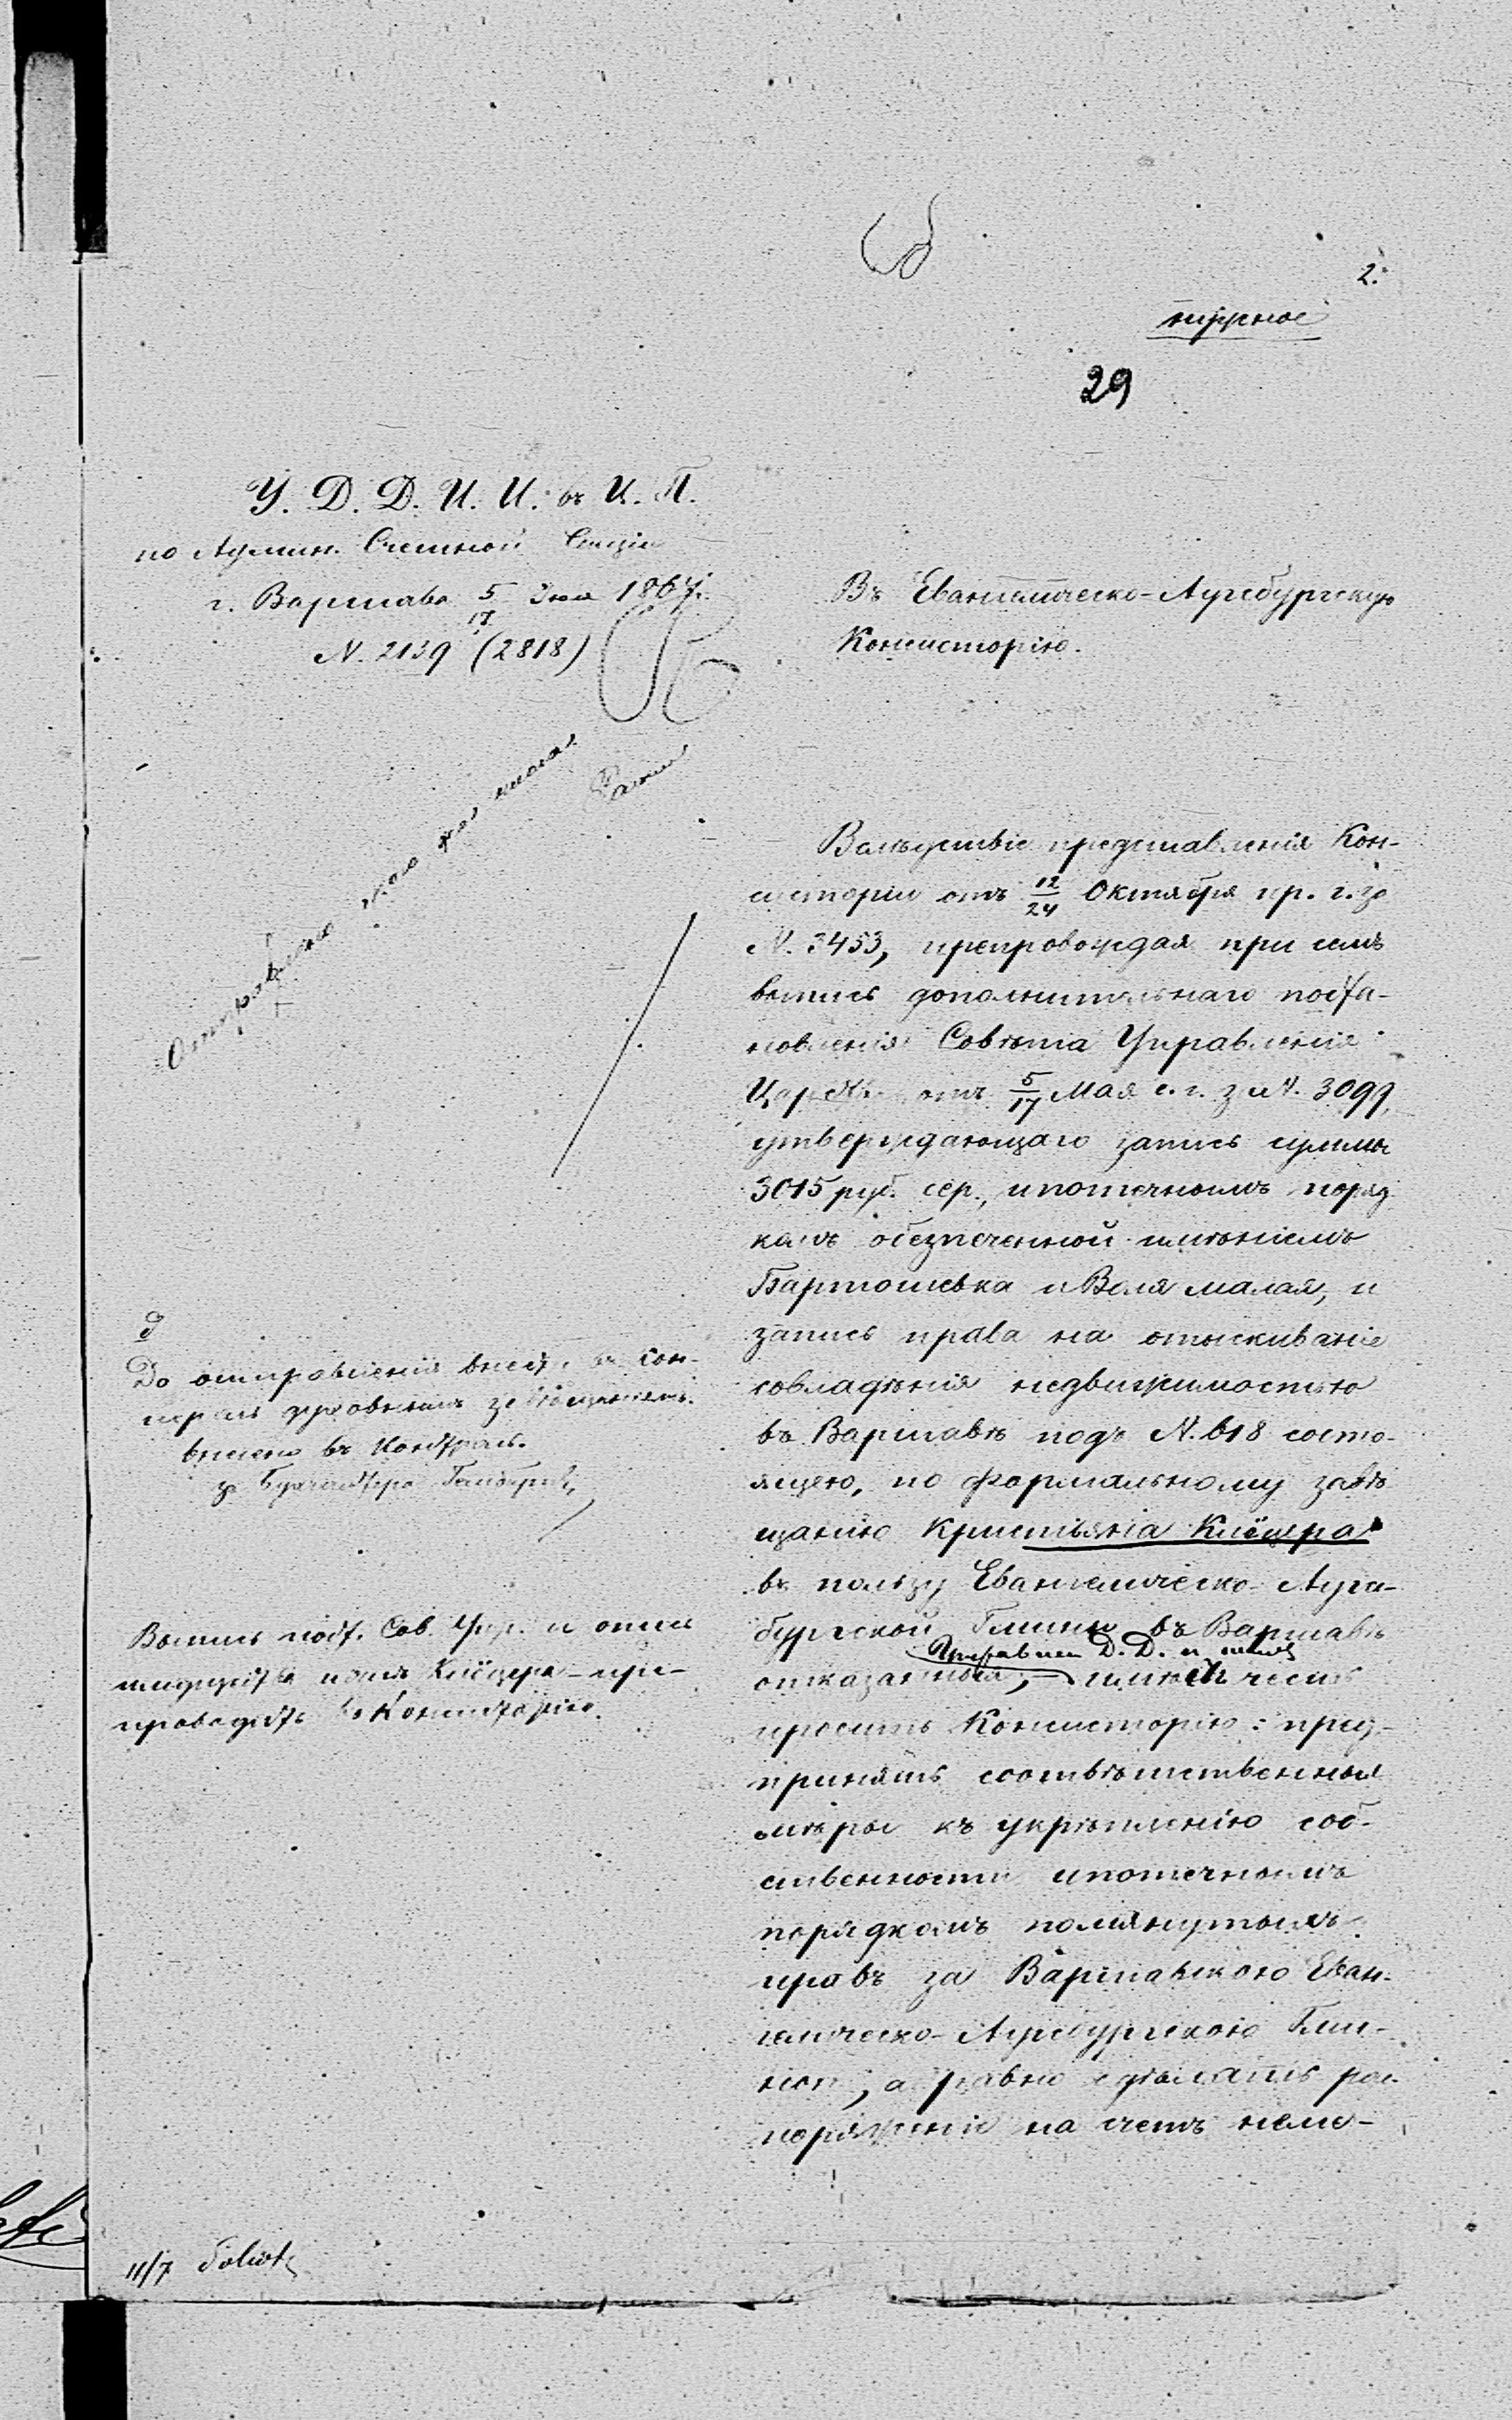 2.
нужное
29
У. Д. Д. И. И. въ Ц. П.
по Админ. Счетной Секціи
г. Варшава 5/17 Іюля 1867 г.
N. 2139 (2818)
Въ Евангелическо-Аугсбургскую
Консисторію.
Вслѣдствіе представленія Кон-
систоріи отъ 12/24 Октября пр. г. за
N. 3453, препровождая при семъ
выпись дополнительнаго поста-
новленія Совѣта Управленія
Царства отъ 5/17 Мая с. г. за N. 3099,
утверждающаго запись суммы
3015 руб. сер., ипотечнымъ поряд
комъ обезпеченной имѣніемъ
Бартошевка и Воля малая, и
запись права на отыскиваніе
совладѣнія недвижимостью
въ Варшавѣ подъ N. 618 состо-
ящею, по формальному завѣ
щанію Кристьяна Клёцера
въ пользу Евангелическо-Аугс-
бургской Гмины въ Варшавѣ
Управлен. Д. Д. и
отказанныя, имѣетъ честь
просить Консисторію: пред-
принять соотвѣтственныя
мѣры къ укрѣпленію соб-
ственности ипотечнымъ
порядкомъ помянутыхъ
правъ за Варшавскою Еван-
гелическо-Аугсбургскою Гми-
ною, а равно сдѣлать рас-
поряженіе на счетъ неме-
До отправленія внести въ кон-
внесено въ контроль.
за Бухгалтера
Выпись пост. Сов. Упр. и опись
Клёцера – пре-
проводить въ Консисторію.
11/7